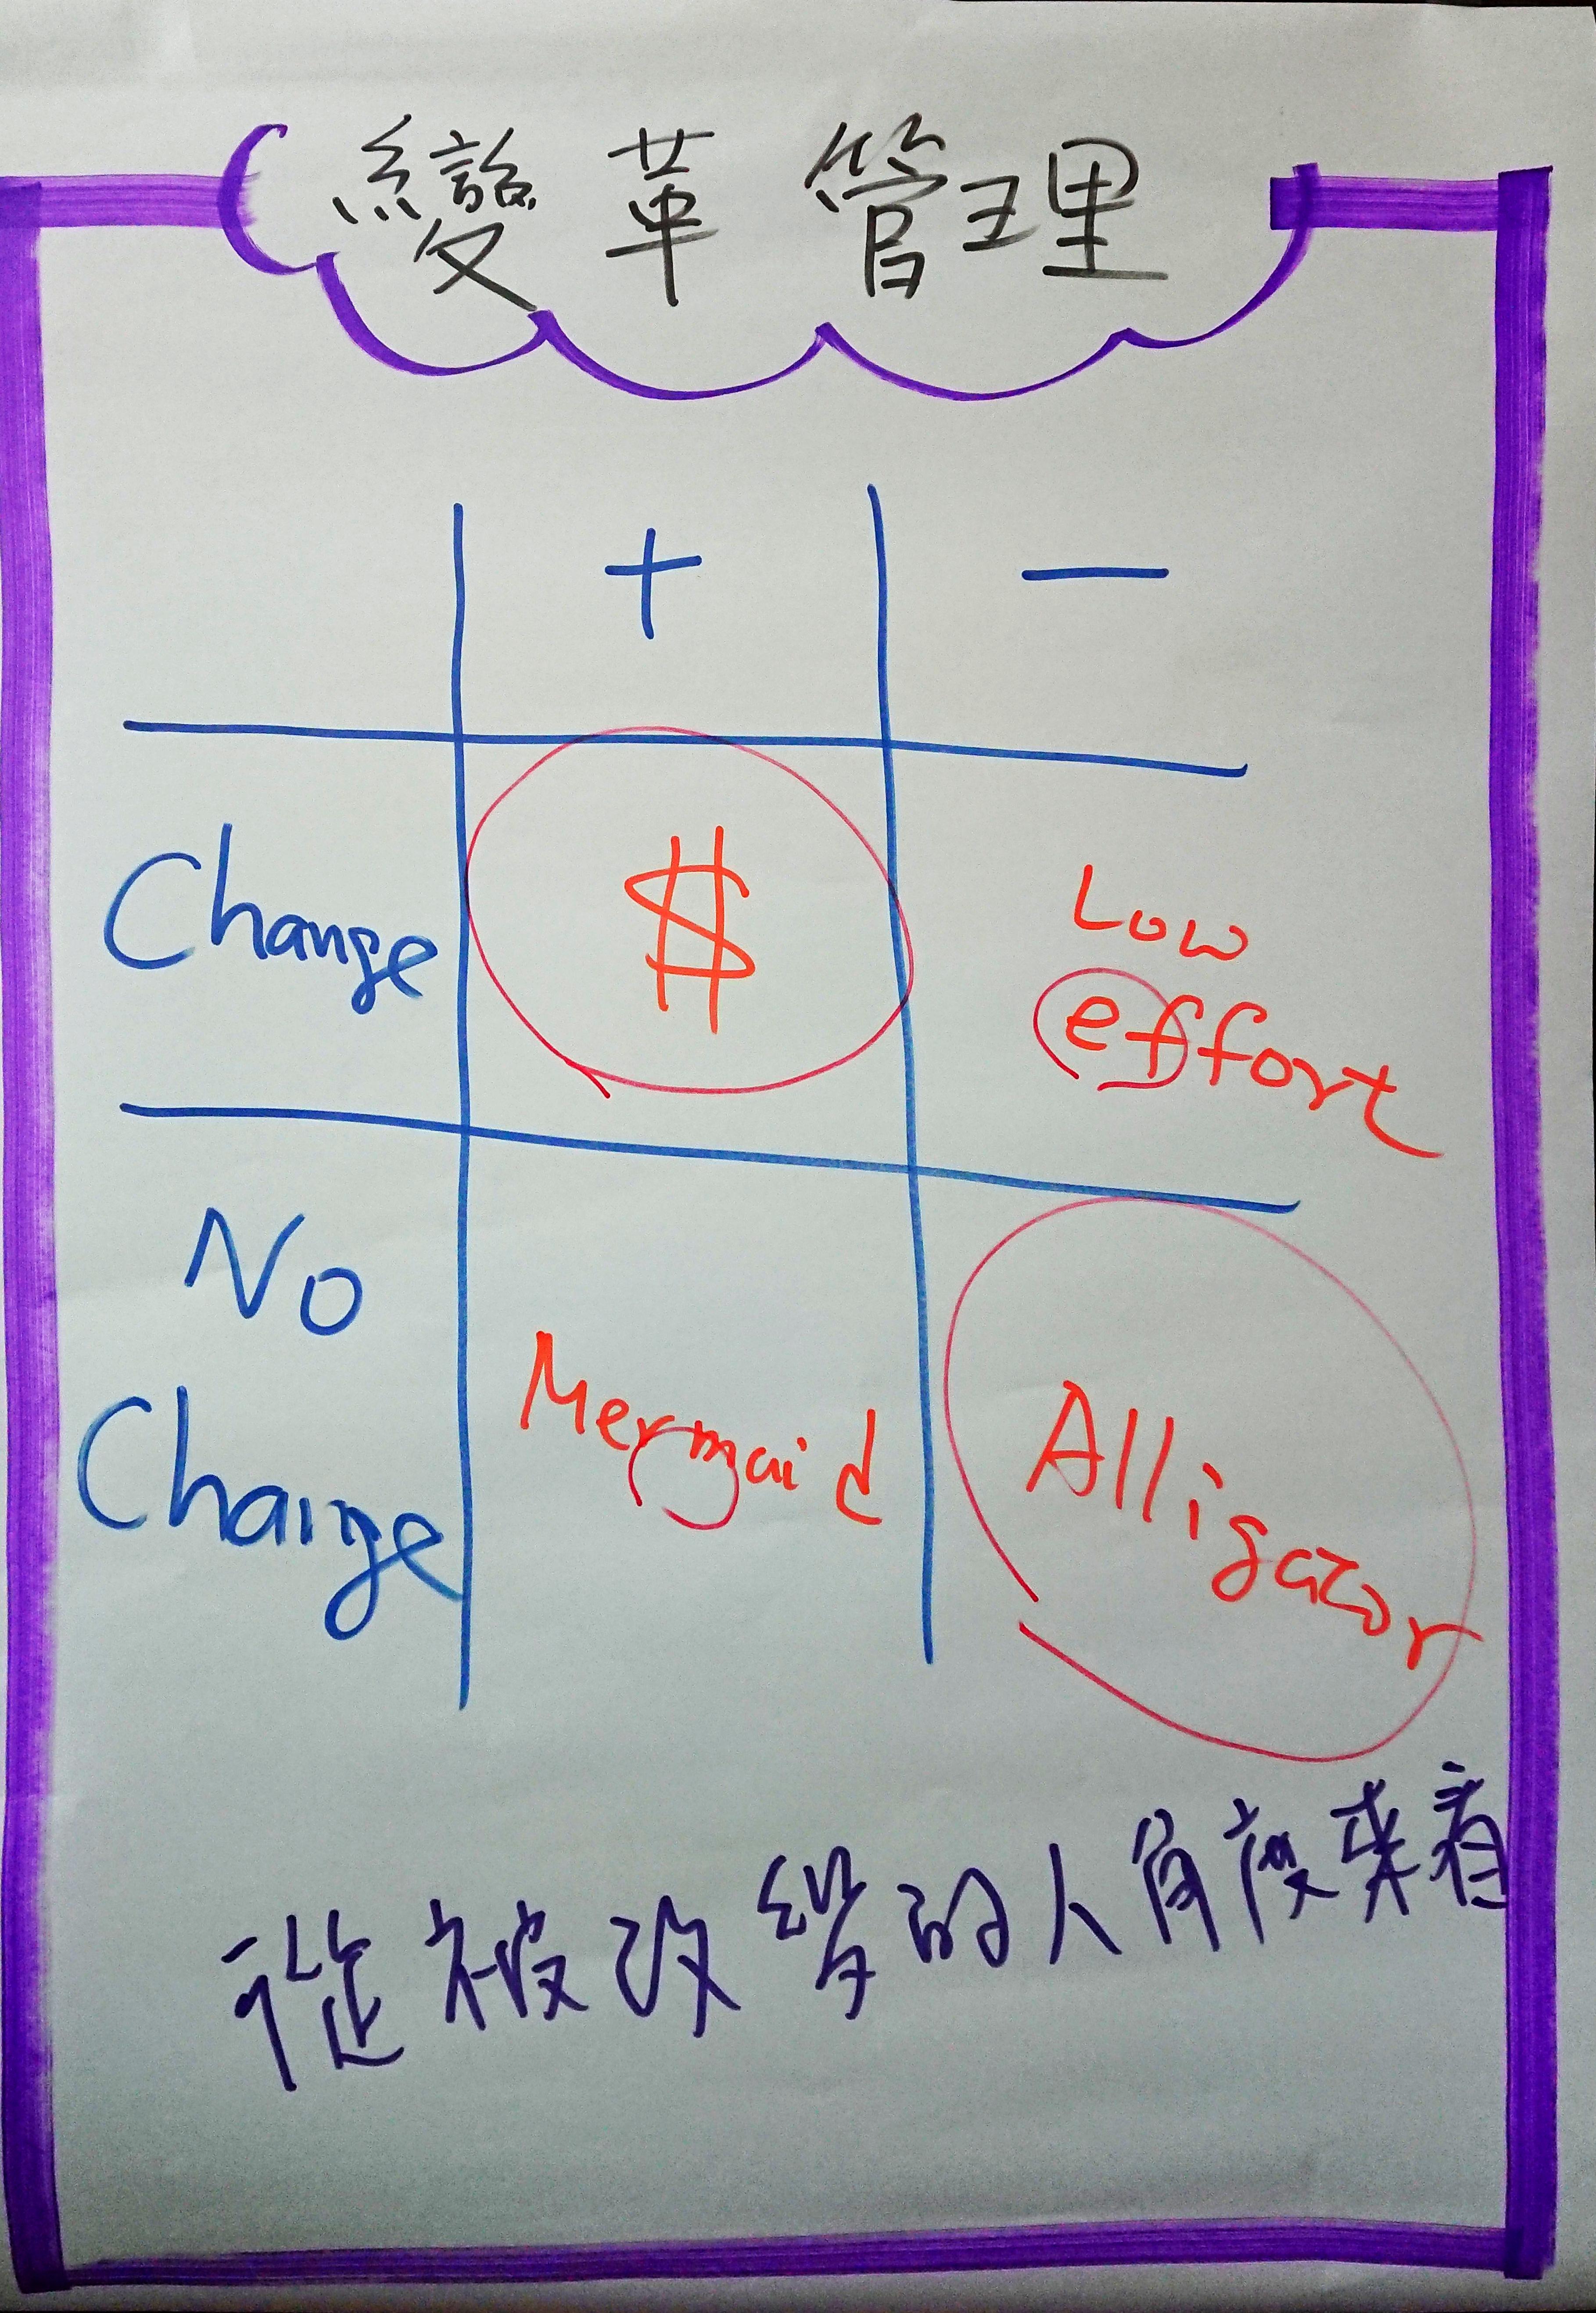 變革管理
+ −
Change $ Low
effort
No
Change Mermaid Alligator
從被改變的人角度來看